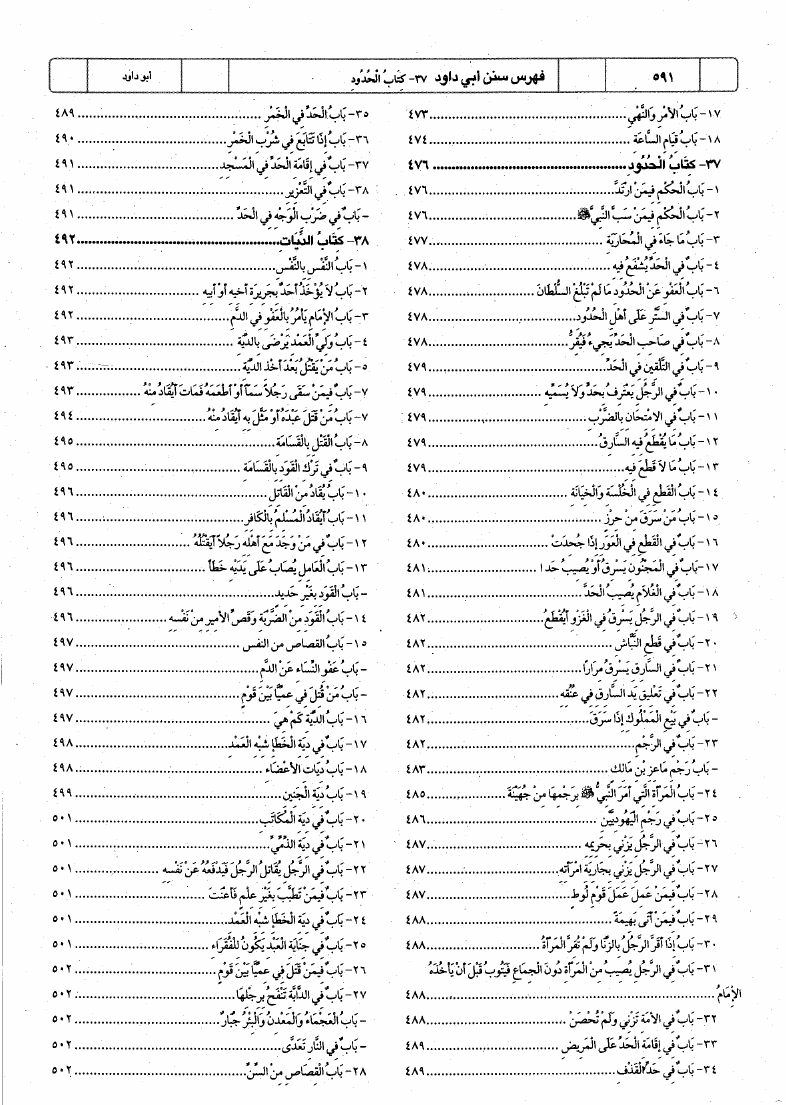 ٥٩١
فهرس سنن أبي داود ٣٧- كتَابُ الْحُدُود
أبو داود
١٧- بَابُ الأَمْرِ وَالنَّهْيِ ٤٧٣
١٨- بَابُ قِيَامِ السَّاعَة ٤٧٤
٣٧- كتَابُ الْحُدُود ٤٧٦
١- بَابُ الْحُكْمِ فِيمَنْ ارْتَدَّ ٤٧٦
٢- بَابُ الْحُكْمِ فِيمَنْ سَبَّ النَّبِيَّ ﷺ ٤٧٦
٣- بَابُ مَا جَاءَ فِي الْمُحَارَبَة ٤٧٧
٤- بَابٌ فِي الْحَدِّ يُشْفَعُ فِيه ٤٧٨
٦- بَابُ الْعَفْوِ عَنْ الْحُدُودِ مَا لَمْ تَبْلُغِ السُّلْطَانَ ٤٧٨
٧- بَابٌ فِي السَّتْرِ عَلَى أَهْلِ الْحُدُود ٤٧٨
٨- بَابٌ فِي صَاحِبِ الْحَدِّ يَجِيءُ فَيُقِرُّ ٤٧٨
٩- بَابٌ فِي التَّلْقِينِ فِي الْحَدِّ ٤٧٩
١٠- بَابٌ فِي الرَّجُلِ يَعْتَرِفُ بِحَدٍّ وَلاَ يُسَمِّيه ٤٧٩
١١- بَابٌ فِي الامْتِحَانِ بِالضَّرْبِ ٤٧٩
١٢- بَابُ مَا يُقْطَعُ فِيهِ السَّارِقُ ٤٧٩
١٣- بَابُ مَا لاَ قَطْعَ فِيه ٤٧٩
١٤- بَابُ الْقَطْعِ فِي الْخُلْسَةِ وَالْخِيَانَة ٤٨٠
١٥- بَابُ مَنْ سَرَقَ مِنْ حِرْزٍ ٤٨٠
١٦- بَابٌ فِي الْقَطْعِ فِي الْعَوَرِ إِذَا جُحِدَتْ ٤٨٠
١٧- بَابٌ فِي الْمَجْنُونِ يَسْرِقُ أَوْ يُصِيبُ حَدا ٤٨١
١٨- بَابٌ فِي الْغُلاَمِ يُصِيبُ الْحَدَّ ٤٨١
١٩- بَابٌ فِي الرَّجُلِ يَسْرِقُ فِي الْغَزْوِ أَيُقْطَعُ ٤٨٢
٢٠- بَابٌ فِي قَطْعِ النَّبَّاشِ ٤٨٢
٢١- بَابٌ فِي السَّارِقِ يَسْرِقُ مِرَارًا ٤٨٢
٢٢- بَابٌ فِي تَعْلِيقِ يَدِ السَّارِقِ فِي عُنُقِه ٤٨٢
- بَابٌ فِي بَيْعِ الْمَمْلُوكِ إِذَا سَرَقَ ٤٨٢
٢٣- بَابٌ فِي الرَّجْمِ ٤٨٢
- بَابُ رَجْمِ مَاعِزِ بْنِ مَالِك ٤٨٣
٢٤- بَابُ الْمَرْأَةِ الَّتِي أَمَرَ النَّبِيُّ ﷺ بِرَجْمِهَا مِنْ جُهَيْنَةَ ٤٨٥
٢٥- بَابٌ فِي رَجْمِ الْيَهُودِيَّيْنِ ٤٨٦
٢٦- بَابٌ فِي الرَّجُلِ يَزْنِي بِحَرِيمِه ٤٨٧
٢٧- بَابٌ فِي الرَّجُلِ يَزْنِي بِجَارِيَةِ امْرَأَتِه ٤٨٧
٢٨- بَابٌ فِيمَنْ عَمِلَ عَمَلَ قَوْمِ لُوطٍ ٤٨٧
٢٩- بَابٌ فِيمَنْ أَتَى بَهِيمَةً ٤٨٨
٣٠- بَابُ إِذَا أَقَرَّ الرَّجُلُ بِالزِّنَا وَلَمْ تُقِرَّ الْمَرْأَةُ ٤٨٨
٣١- بَابٌ فِي الرَّجُلِ يُصِيبُ مِنْ الْمَرْأَةِ دُونَ الْجِمَاعِ فَيَتُوبُ قَبْلَ أَنْ يَأْخُذَهُ
الإِمَامُ ٤٨٨
٣٢- بَابٌ فِي الأَمَةِ تَزْنِي وَلَمْ تُحْصَنْ ٤٨٨
٣٣- بَابٌ فِي إِقَامَةِ الْحَدِّ عَلَى الْمَرِيضِ ٤٨٩
٣٤- بَابٌ فِي حَدِّ الْقَذْفِ ٤٨٩
٣٥- بَابُ الْحَدِّ فِي الْخَمْرِ ٤٨٩
٣٦- بَابُ إِذَا تَتَابَعَ فِي شُرْبِ الْخَمْرِ ٤٩٠
٣٧- بَابٌ فِي إِقَامَةِ الْحَدِّ فِي الْمَسْجِد ٤٩١
٣٨- بَابٌ فِي التَّعْزِير ٤٩١
- بَابٌ فِي ضَرْبِ الْوَجْهِ فِي الْحَدِّ ٤٩١
٣٨- كتَابُ الدِّيَات ٤٩٢
١- بَابُ النَّفْسِ بِالنَّفْسِ ٤٩٢
٢- بَابُ لاَ يُؤْخَذُ أَحَدٌ بِجَرِيرَةِ أَخِيهِ أَوْ أَبِيه ٤٩٢
٣- بَابُ الإِمَامِ يَأْمُرُ بِالْعَفْوِ فِي الدَّمِ ٤٩٢
٤- بَابُ وَلِيِّ الْعَمْدِ يَرْضَى بِالدِّيَة ٤٩٣
٥- بَابُ مَنْ يَقْتُلُ بَعْدَ أَخْذِ الدِّيَة ٤٩٣
٧- بَابٌ فِيمَنْ سَقَى رَجُلاً سَمّاً أَوْ أَطْعَمَهُ فَمَاتَ أَيُقَادُ مِنْهُ ٤٩٣
٧- بَابُ مَنْ قَتَلَ عَبْدَهُ أَوْ مَثَّلَ بِهِ أَيُقَادُ مِنْهُ ٤٩٤
٨- بَابُ الْقَتْلِ بِالْقَسَامَة ٤٩٥
٩- بَابٌ فِي تَرْكِ الْقَوَدِ بِالْقَسَامَة ٤٩٥
١٠- بَابُ يُقَادُ مِنْ الْقَاتِلِ ٤٩٦
١١- بَابُ أَيُقَادُ الْمُسْلِمُ بِالْكَافِرِ ٤٩٦
١٢- بَابٌ فِي مَنْ وَجَدَ مَعَ أَهْلِهِ رَجُلاً أَيَقْتُلُهُ ٤٩٦
١٣- بَابُ الْعَامِلِ يُصَابُ عَلَى يَدَيْهِ خَطَأً ٤٩٦
- بَابُ الْقَوَدِ بِغَيْرِ حَدِيد ٤٩٦
١٤- بَابُ الْقَوَدِ مِنْ الضَّرْبَةِ وَقَصِّ الأَمِيرِ مِنْ نَفْسِه ٤٩٦
١٥- بَابُ الْقصَاص مِن النفس ٤٩٧
- بَابُ عَفْوِ النِّسَاءِ عَنْ الدَّمِ ٤٩٧
- بَابُ مَنْ قُتِلَ فِي عِمِّيَّا بَيْنَ قَوْمٍ ٤٩٧
١٦- بَابُ الدِّيَةِ كَمْ هِيَ ٤٩٧
١٧- بَابٌ فِي دِيَةِ الْخَطَإِ شِبْهِ الْعَمْد ٤٩٨
١٨- بَابُ دِيَاتِ الأَعْضَاء ٤٩٨
١٩- بَابُ دِيَةِ الْجَنِين ٤٩٩
٢٠- بَابٌ فِي دِيَةِ الْمُكَاتَب ٥٠١
٢١- بَابٌ فِي دِيَةِ الذِّمِّيِّ ٥٠١
٢٢- بَابٌ فِي الرَّجُلِ يُقَاتِلُ الرَّجُلَ فَيَدْفَعُهُ عَنْ نَفْسِه ٥٠١
٢٣- بَابٌ فِيمَنْ تَطَبَّبَ بِغَيْرِ عِلْمٍ فَأَعْنَتَ ٥٠١
٢٤- بَابٌ فِي دِيَةِ الْخَطَإِ شِبْهِ الْعَمْد ٥٠١
٢٥- بَابٌ فِي جِنَايَةِ الْعَبْدِ يَكُونُ لِلْفُقَرَاء ٥٠١
٢٦- بَابٌ فِيمَنْ قُتِلَ فِي عِمِّيَّا بَيْنَ قَوْمٍ ٥٠٢
٢٧- بَابٌ فِي الدَّابَّةِ تَنْفَحُ بِرِجْلِهَا ٥٠٢
- بَابُ الْعَجْمَاءُ وَالْمَعْدِنُ وَالْبِئْرُ جُبَارٌ ٥٠٢
- بَابٌ فِي النَّارِ تَعَدَّى ٥٠٢
٢٨- بَابُ الْقِصَاصِ مِنْ السِّنِّ ٥٠٢